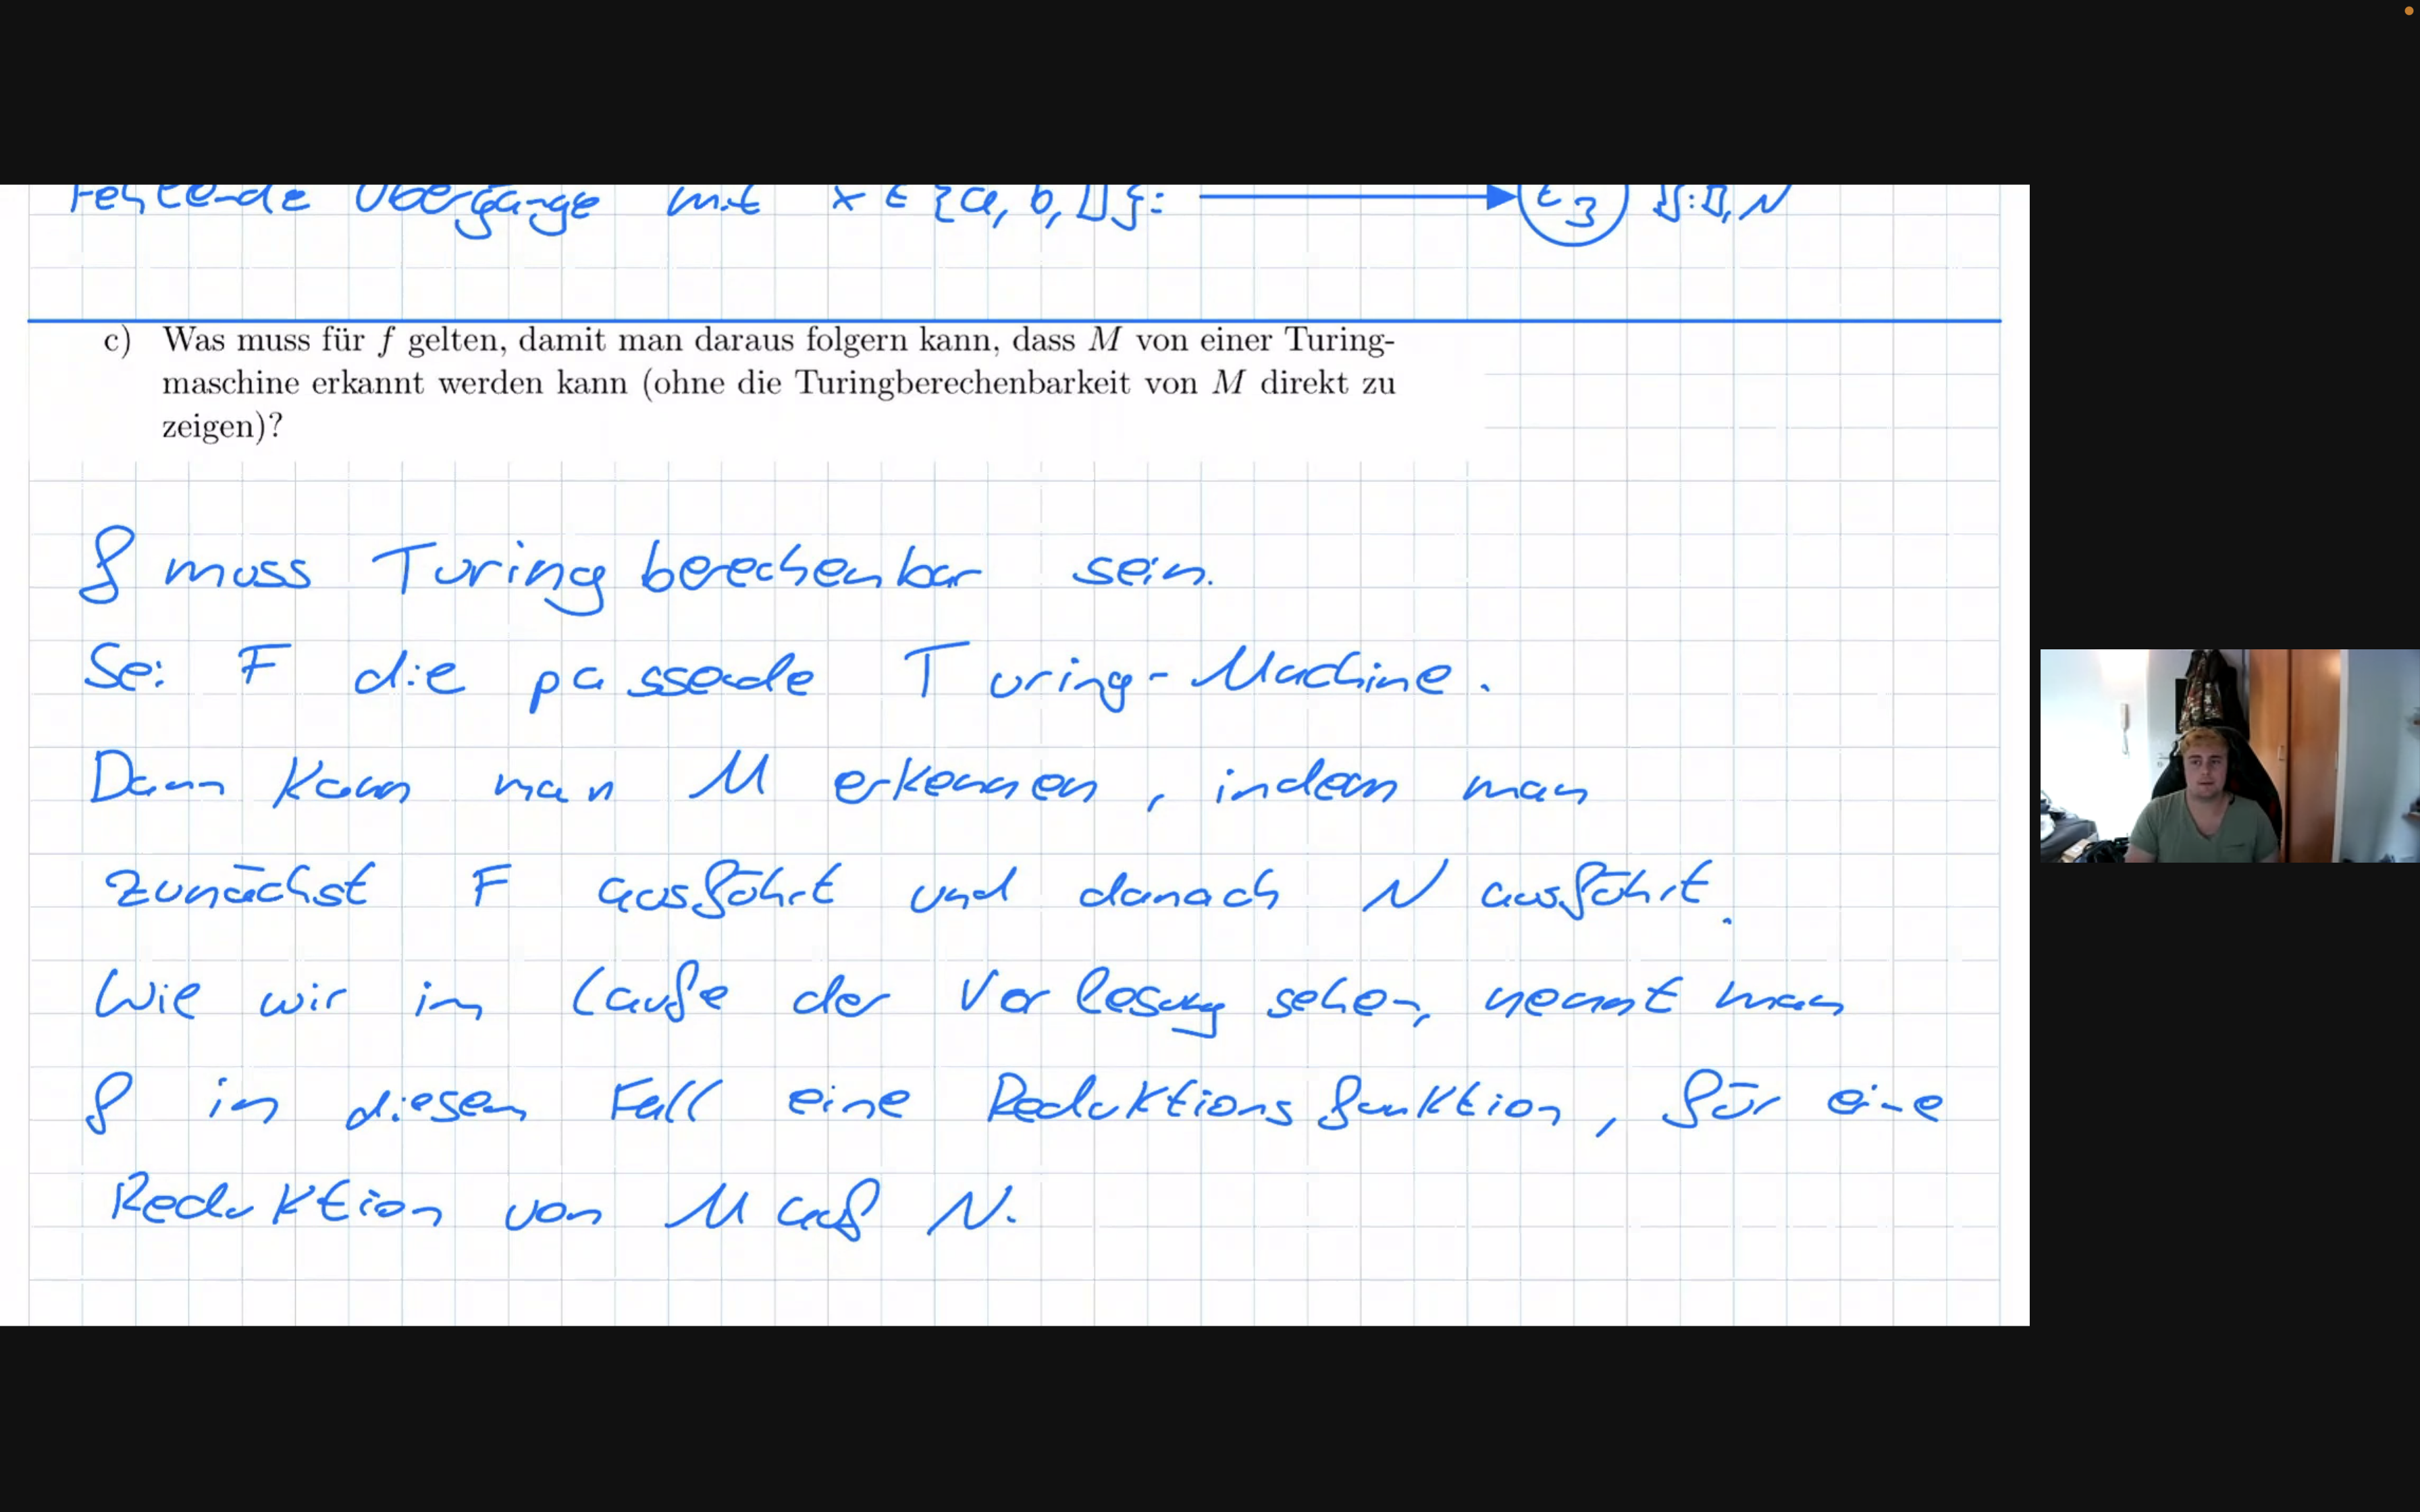 Fehlende Übergänge mit x ∈ {a, b, □}:
c) Was muss für f gelten, damit man daraus folgern kann, dass M von einer Turing-
maschine erkannt werden kann (ohne die Turingberechenbarkeit von M direkt zu
zeigen)?
f muss Turing berechenbar sein.
Sei F die passende Turing-Machine.
Dann kann man M erkennen, indem man
zunächst F ausführt und danach N ausführt.
Wie wir im Laufe der Vorlesung sehen, nennt man
f in diesem Fall eine Reduktionsfunktion, für eine
Reduktion von M auf N.